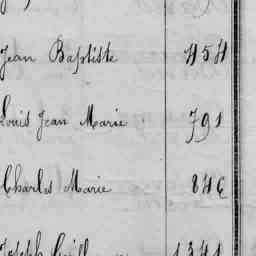 Jean Baptiste 454
Louis Jean Marie 791
Charles Marie 846
Joseph 1341